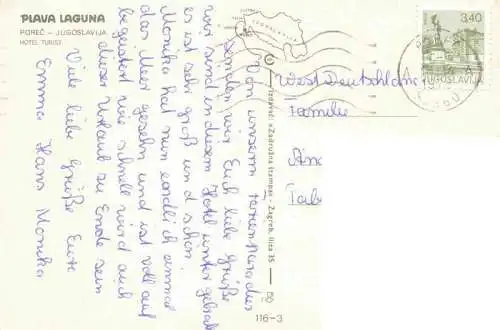 PLAVA LAGUNA
POREČ – JUGOSLAVIJA
HOTEL TURIST
Von unserm Ferienparadies
senden wir Euch liebe Grüße
wir sind in diesem Hotel untergebra
es ist sehr groß und schön
Monika hat nun endlich einmal
das Meer gesehn und ist voll auf
begeistert wie schnell wird auch
dieser Urlaub zu Ende sein
Viele liebe Grüße Eure
Emma Hans Monika
JUGOSLAVIJA
Izdavač: »Zadružna štampa« - Zagreb, Ilica 35
116-3
3,40
JUGOSLAVIJA
West Deutschland
Familie